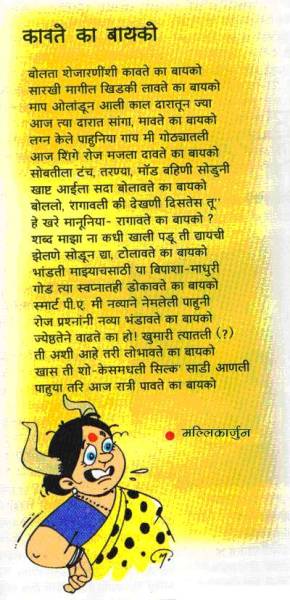 कावते का बायको
बोलता शेजारणींशी कावते का बायको
सारखी मागील खिडकी लावते का बायको
माप ओलांडून आली काल दारातून ज्या
आज त्या दारात सांगा, मावते का बायको
लग्न केले पाहुनिया गाय मी गोठ्यातली
आज शिंगे रोज मजला दावते का बायको
सोबतीला टंच, तरण्या, मॉड बहिणी सोडुनी
खाष्ट आईला सदा बोलावते का बायको
बोललो, रागावली की देखणी दिसतेस तू"
हे खरे मानूनिया- रागावते का बायको ?
शब्द माझा ना कधी खाली पडू ती द्यायची
झेलणे सोडून द्या, टोलावते का बायको
भांडती माझ्याचसाठी या बिपाशा-माधुरी
गोड त्या स्वप्नातही डोकावते का बायको
स्मार्ट पी.ए. मी नव्याने नेमलेली पाहुनी
रोज प्रश्नांनी नव्या भंडावते का बायको
ज्येष्ठतेने वाढते का हो! खुमारी त्यातली (?)
ती अशी आहे तरी लोभावते का बायको
खास ती शो-केसमधली सिल्क' साडी आणली
पाहुया तरि आज रात्री पावते का बायको
मल्लिकार्जुन